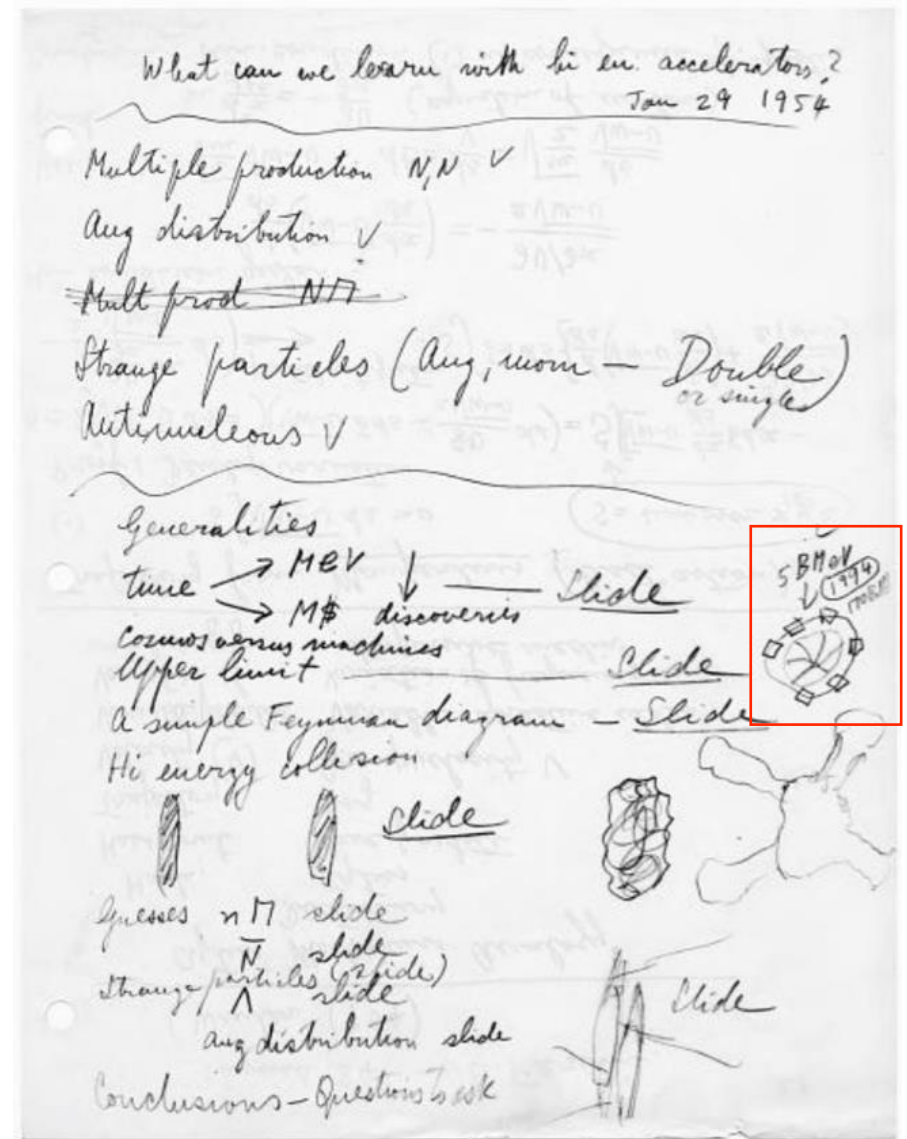 What can we learn with hi en. accelerators?
Jan 29 1954
Multiple production N,N V
Ang distribution V
Mult prod NΠ
Strange particles (Ang, mom — Double
or single)
Antinucleons V
Generalities
time → MeV
→ M$ discoveries — Slide
5 BMeV
1994
Cosmos versus machines
Upper limit — Slide
A simple Feynman diagram — Slide
Hi energy collision
Slide
Guesses n Π slide
N̅ slide
Strange particles (slide)
Λ slide
ang distribution slide
Slide
Conclusions – Questions to ask